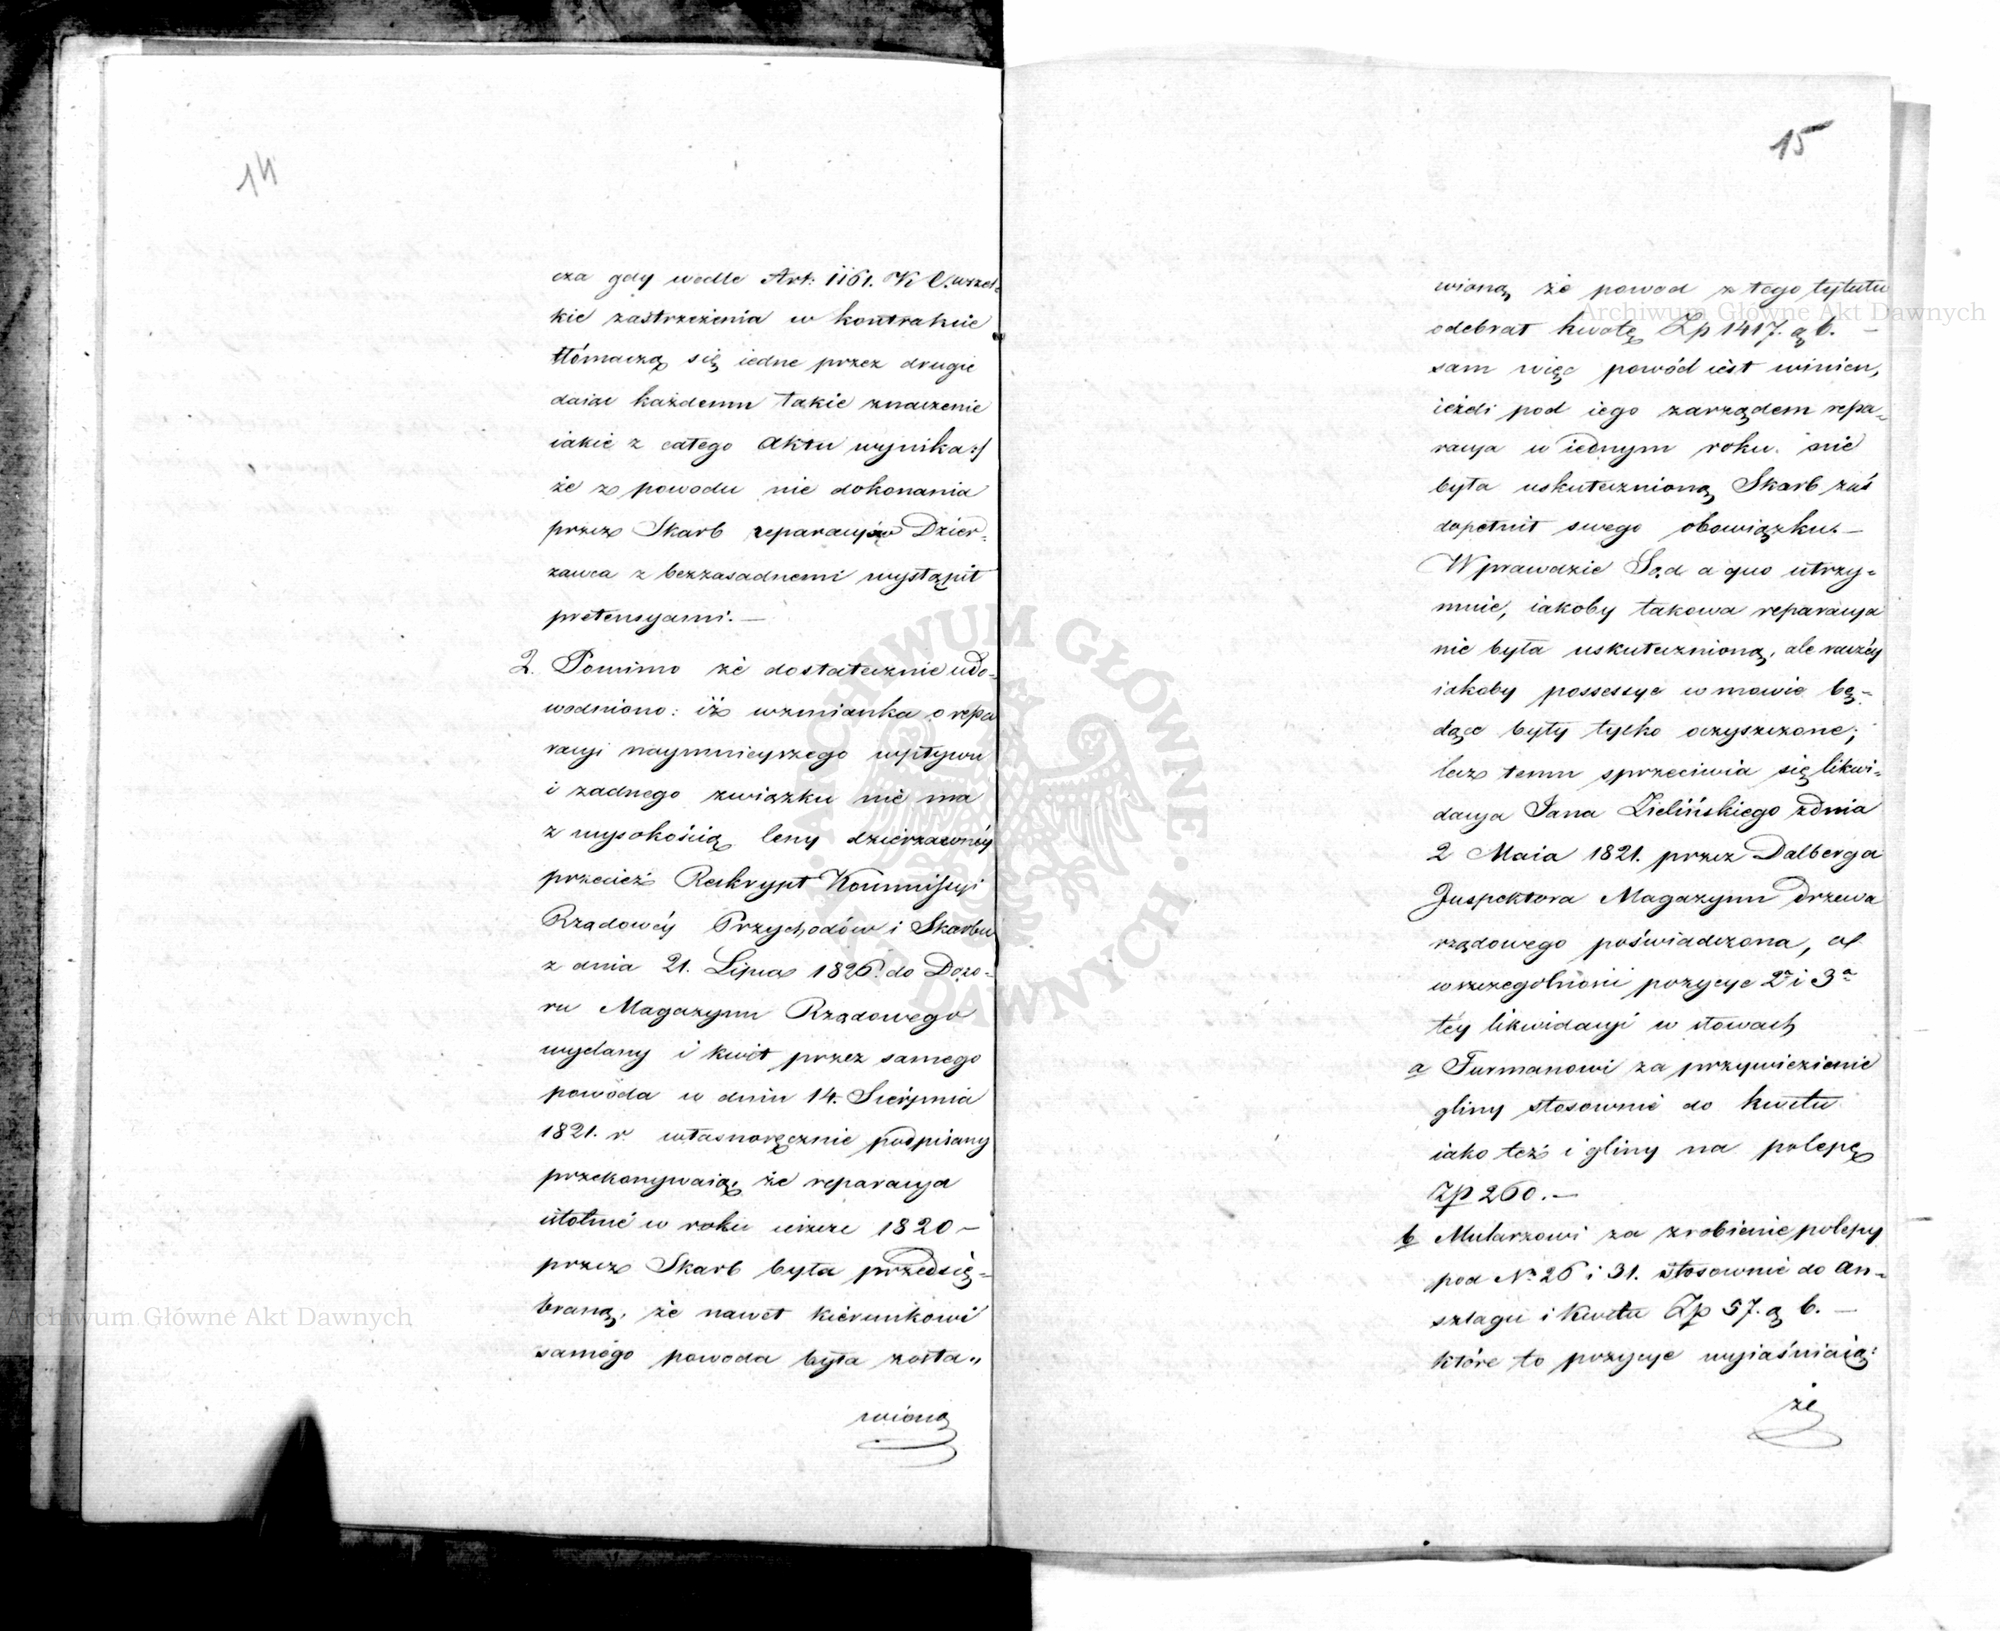 14
cza gdy wedle Art: 1161. K. C. wszel-
kie zastrzeżenia w kontrakcie
tłómaczą się iedne przez drugie
daiąc każdemu takie znaczenie
iakie z całego aktu wynika:/
że z powodu nie dokonania
przez Skarb reparacyiów Dzier-
zawca z bezzasadnemi wystąpił
pretensyami. —
2. Pomimo że dostatecznie udo-
wodniono: iż wzmianka o repa
racyi naymnieyszego wpływu
i żadnego związku nie ma
z wysokością ceny dzierzawnéy
przecież Reskrypt Kommissyi
Rządowéy Przychodów i Skarbu
z dnia 21. Lipca 1826. do Dozo-
ru Magazynu Rządowego
wydany i kwit przez samego
powoda w dniu 14. Sierpnia
1821. r. własnoręcznie podpisany
przekonywaią, że reparacya
istotnie w roku ieszcze 1820 —
przez Skarb była przedsię-
braną, że nawet kierunkowi
samego powoda była zosta„
wioną
15
wioną, że powod z tego tytułu
odebrał kwotę Zp 1417. g 6. —
sam więc powód iest winien,
ieżeli pod iego zarządem repa-
racya w iednym roku nie
była uskutecznioną, Skarb zaś
dopełnił swego obowiązku. —
W prawdzie Sąd a quo utrzy-
muie, iakoby takowa reparacya
nie była uskutecznioną, ale raczéy
iakoby possessye w mowie bę-
dące były tylko oczyszczone;
lecz temu sprzeciwia się likwi-
dacya Jana Zielińskiego z dnia
2 Maia 1821. przez Dalberga
Inspektora Magazynu Drzewa
rządowego poświadczona, a
w szczegolności pozycye 2a i 3a
téy likwidacyi w słowach
a Furmanowi za przywiezienie
gliny stosownie do kwitu
iako też i gliny na polepę
Zp 260. —
b Mularzowi za zrobienie polepy
pod No 26 i 31. stosownie do an-
szlagu i kwitu Zp 57. g 6. —
które to pozycye wyiaśniaią:
że
Archiwum Główne Akt Dawnych
Archiwum Główne Akt Dawnych
ARCHIWUM GŁÓWNE AKT DAWNYCH